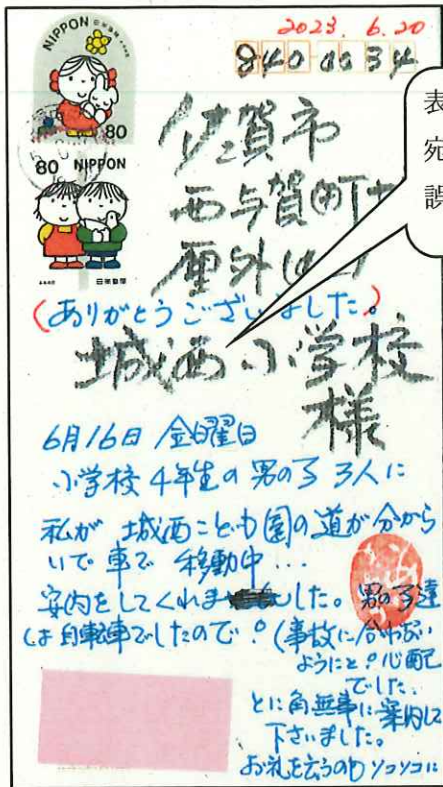 2023. 6. 20
840 0034
NIPPON
80
80 NIPPON
日本郵便
佐賀市
西与賀町
厘外
(ありがとうございました。)
城西小学校
様
表
宛
誤
6月16日 金曜日
小学校4年生の男の子3人に
私が 城西こども園の道が分から
いで車で 移動中...
案内をしてくれました。男の子達
は自転車でしたので!(事故に合わない
ようにと!心配
でした..
とに角無事に案内して
下さいました。
お礼を云うのもソコソコに